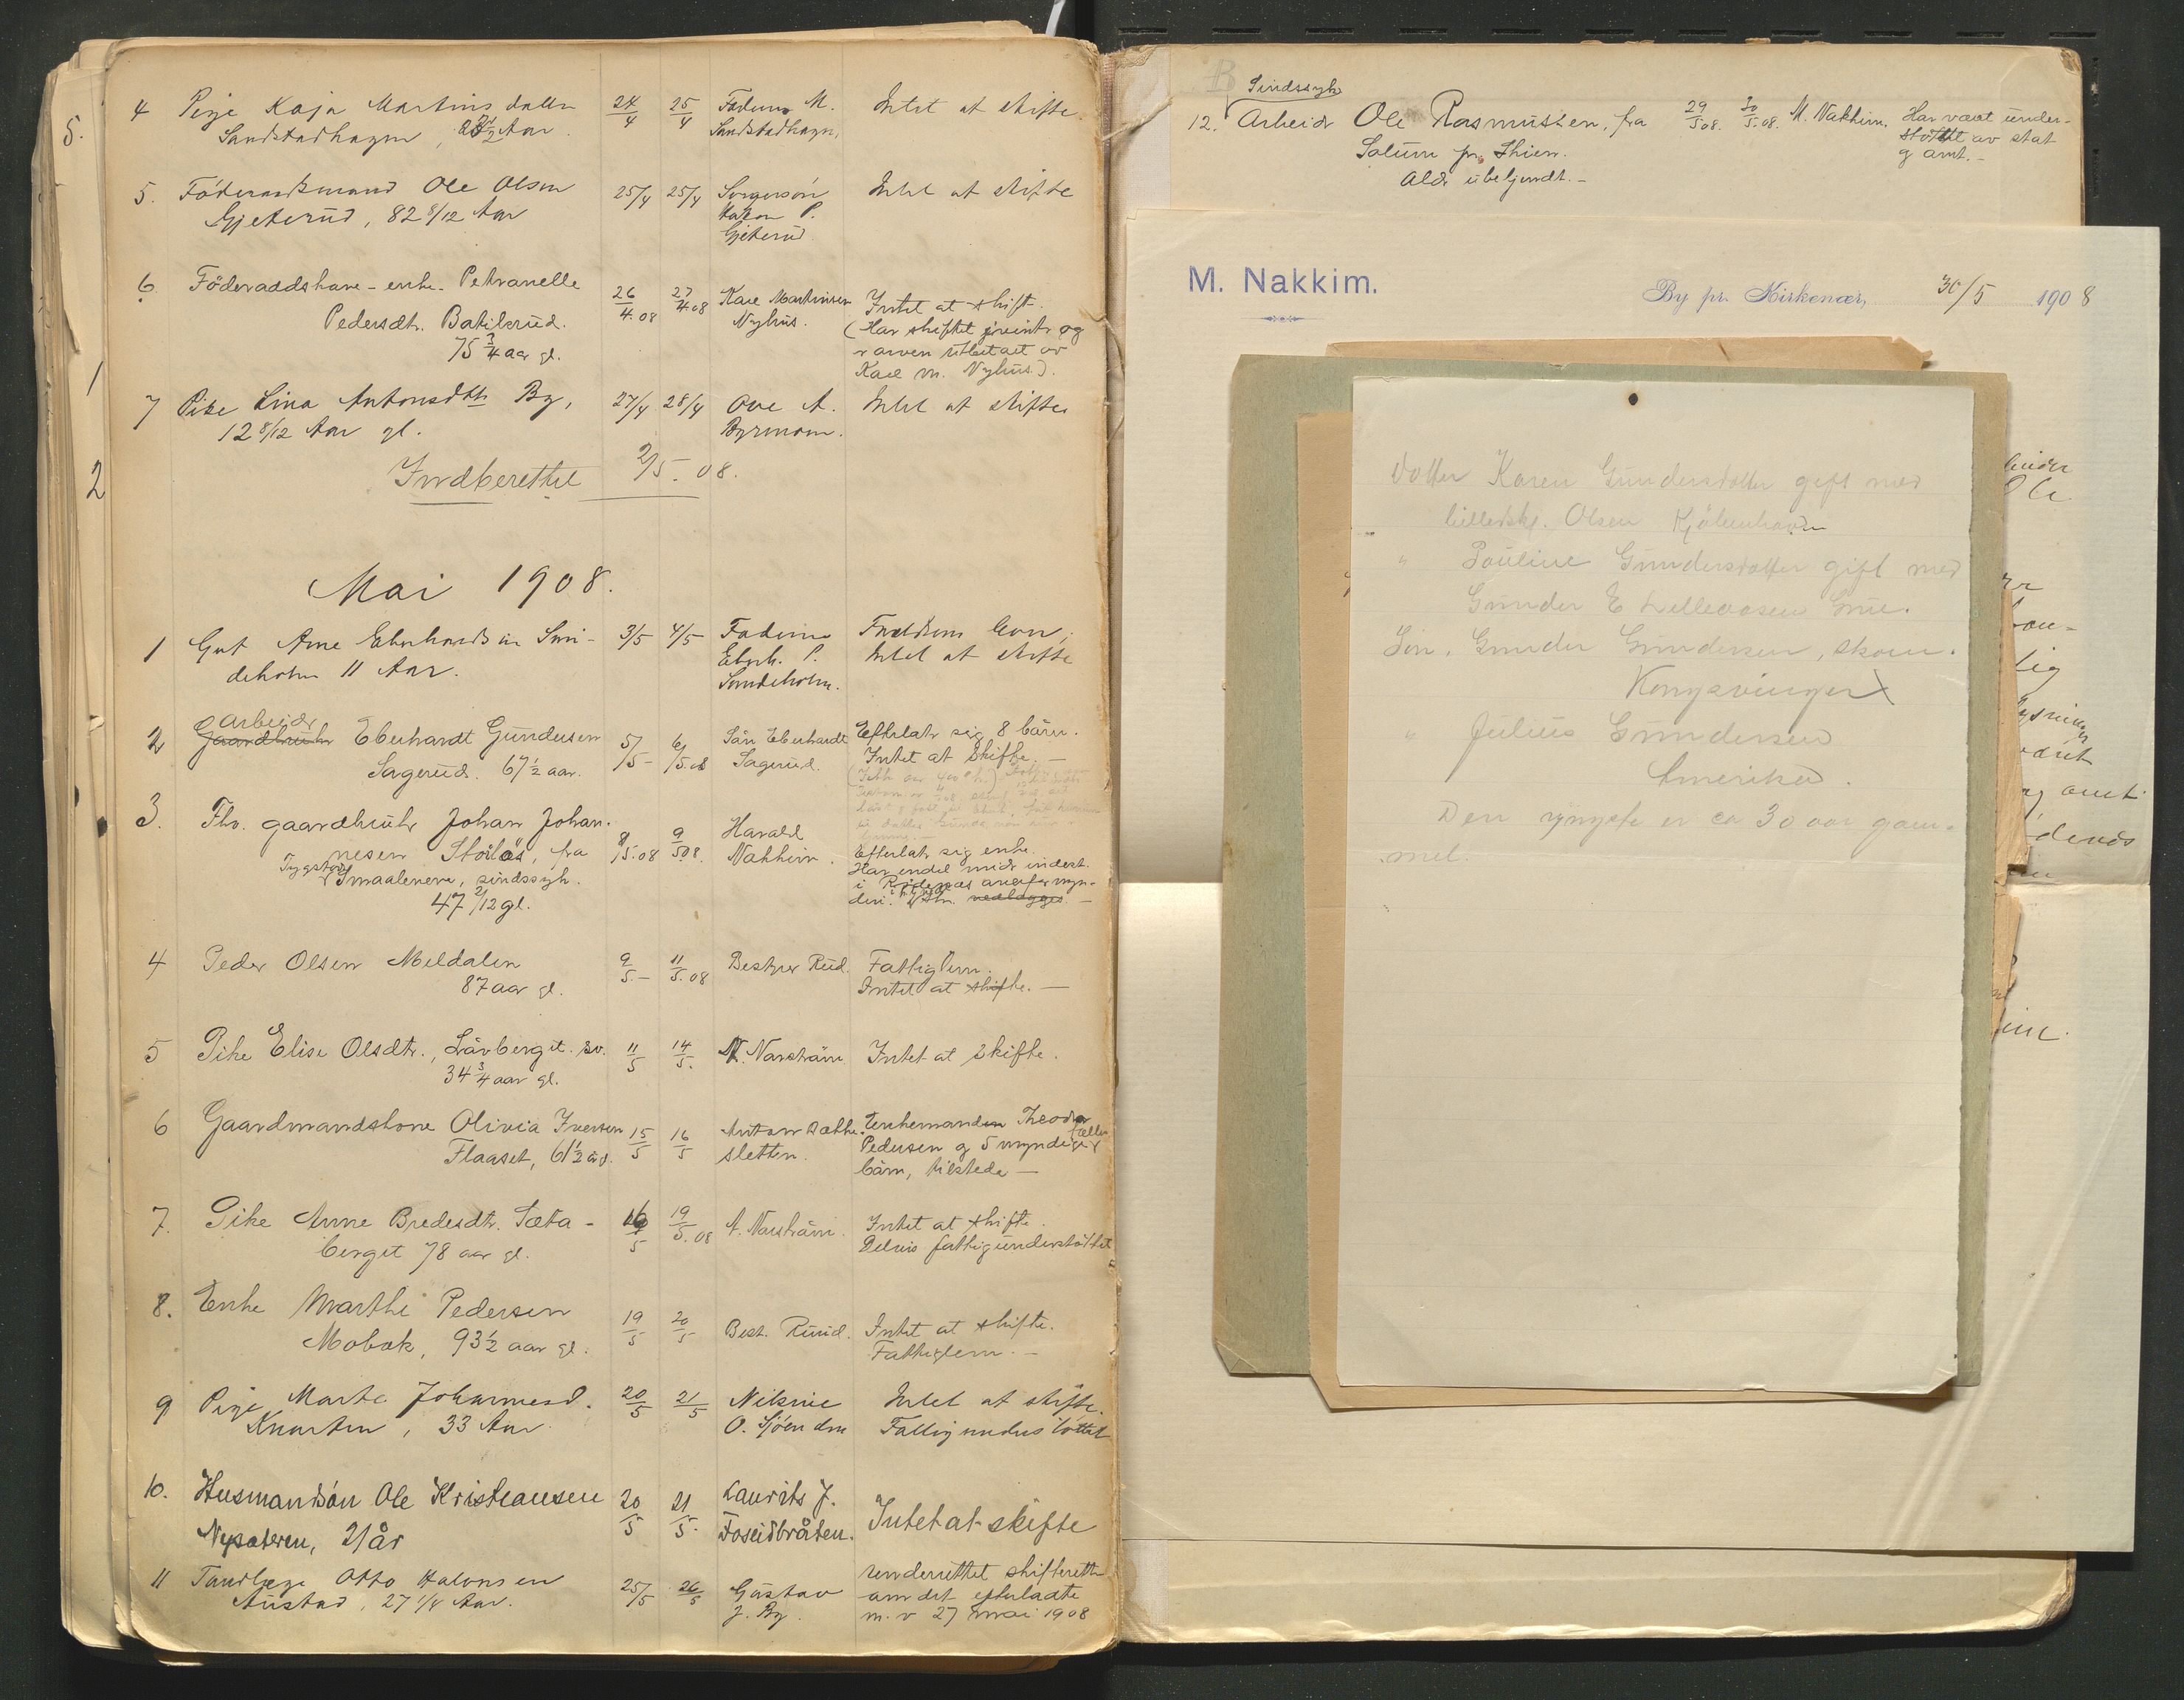 5.
1
2
4 Pige Kaja Martinsdatter 24/4 25/4 Faderen M. Intet at skifte.
Sandstadhagen, Aar. Sandstadhagen,
5. Föderaadsmand Ole Olsen 25/4 25/4 Intet at skifte
Gjeterud, 82 8/12 Aar Hakon P.
Gjeterud
6 Föderaadshave-enke Petranelle 26/4.08 27/4.08 Kare Martinsen Intet at skifte.
Pedersdtr. Batikrud. Nyhus. (Har skiftet og
75 3/4 aar gl. arven utbetalt av
Kare M. Nyhus.).
7 Pike Lina Antonsdtr By, 27/4 28/4 Ove A. Intet at skifte
12 8/12 Aar gl. Byrmoen.
Indberettet 2/5.08.
Mai 1908.
1 Gut Arne Eberhardsen Smi- 3/5 4/5 Faderen Forældrene lever,
deholm 11 Aar. Eberh. P. Intet at skifte
Smideholm.
2 Arbeider
Gaardbruker Eberhardt Gundersen 5/5 6/5.08 Sön Eberhardt Efterlater sig 8 bårn.
Sagerud. 67 1/2 aar. Sagerud. Intet at skifte. —
3. Fhv. gaardbruker Johan Johan- 8/5.08 9/5.08 Harald
nesen Storlös, fra Nakkim. Efterlater sig enke.
Smaalenene, sindssyk. Har endel midler indest.
47 2/12 gl. i Rödenes overformyn-
deri. vedlægges. —
4 Peder Olsen Meldalen 9/5 11/5.08 Bestyrer Rud. Fattiglem.
87 aar gl. Intet at skifte. —
5 Pike Elise Olsdtr., Låvberget. 11/5 14/5. N. Narström Intet at skifte.
34 3/4 aar gl.
6 Gaardmandskone Olivia Iversen 15/5 16/5 Anton Bække- Enkemanden Theodor
Flaaset, 61 1/2 år. sletten. Pedersen og 5 myndige
bårn, tilstede —
7. Pike Anne Bredesdtr. Sæta- 16/5 19/5.08 A. Narström. Intet at skifte.
berget 78 aar gl. Delvis fattigunderstöttet
8. Enke Marthe Pedersen 19/5 20/5 Best. Ruud. Intet at skifte.
Mobak, 93 1/2 aar gl. Fattiglem. —
9 Pige Marte Johannesd. 20/5 21/5 Nilsine Intet at skifte.
Knarten, 33 Aar. O. Sjöenden Fattigunderstöttet
10. Husmandsön Ole Kristiansen 20/5 21/5. Laurits J. Intet at skifte
Nysæteren, 21 år Foseidbråten.
11 Tandlæge Otto Hakonsen 25/5 26/5 Gustav underrettet skifteretten
Austad, 27 1/4 Aar. J. By. om det efterladte
m. v 27 mai 1908
Sindssyk
12. Arbeider Ole Rasmussen, fra 29/5 08. 30/5.08. M. Nakkim. Har vært under-
Solum pr. Skien. støttet av stat
Alder ubekjendt. — og amt. —
M. Nakkim.
By pr. Kirkenær, 30/5 1908
Datter Karen Gundersdatter gift med
billedsk. Olsen Kjöbenhavn
" Pauline Gundersdatter gift med
Gunder E Lilleaasen Grue.
Sön. Gunder Gundersen, skom.
Kongsvinger
" Julius Gundersen
Amerika.
Den yngste er ca 30 aar gam-
mel.